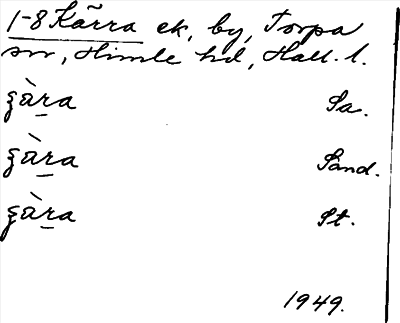 1-8 Kärra ek, by, Torpa
sn, Himle hd, Hall. l.
ʂàra Sa.
ʂàra Sand.
ʂàra St.
1949.